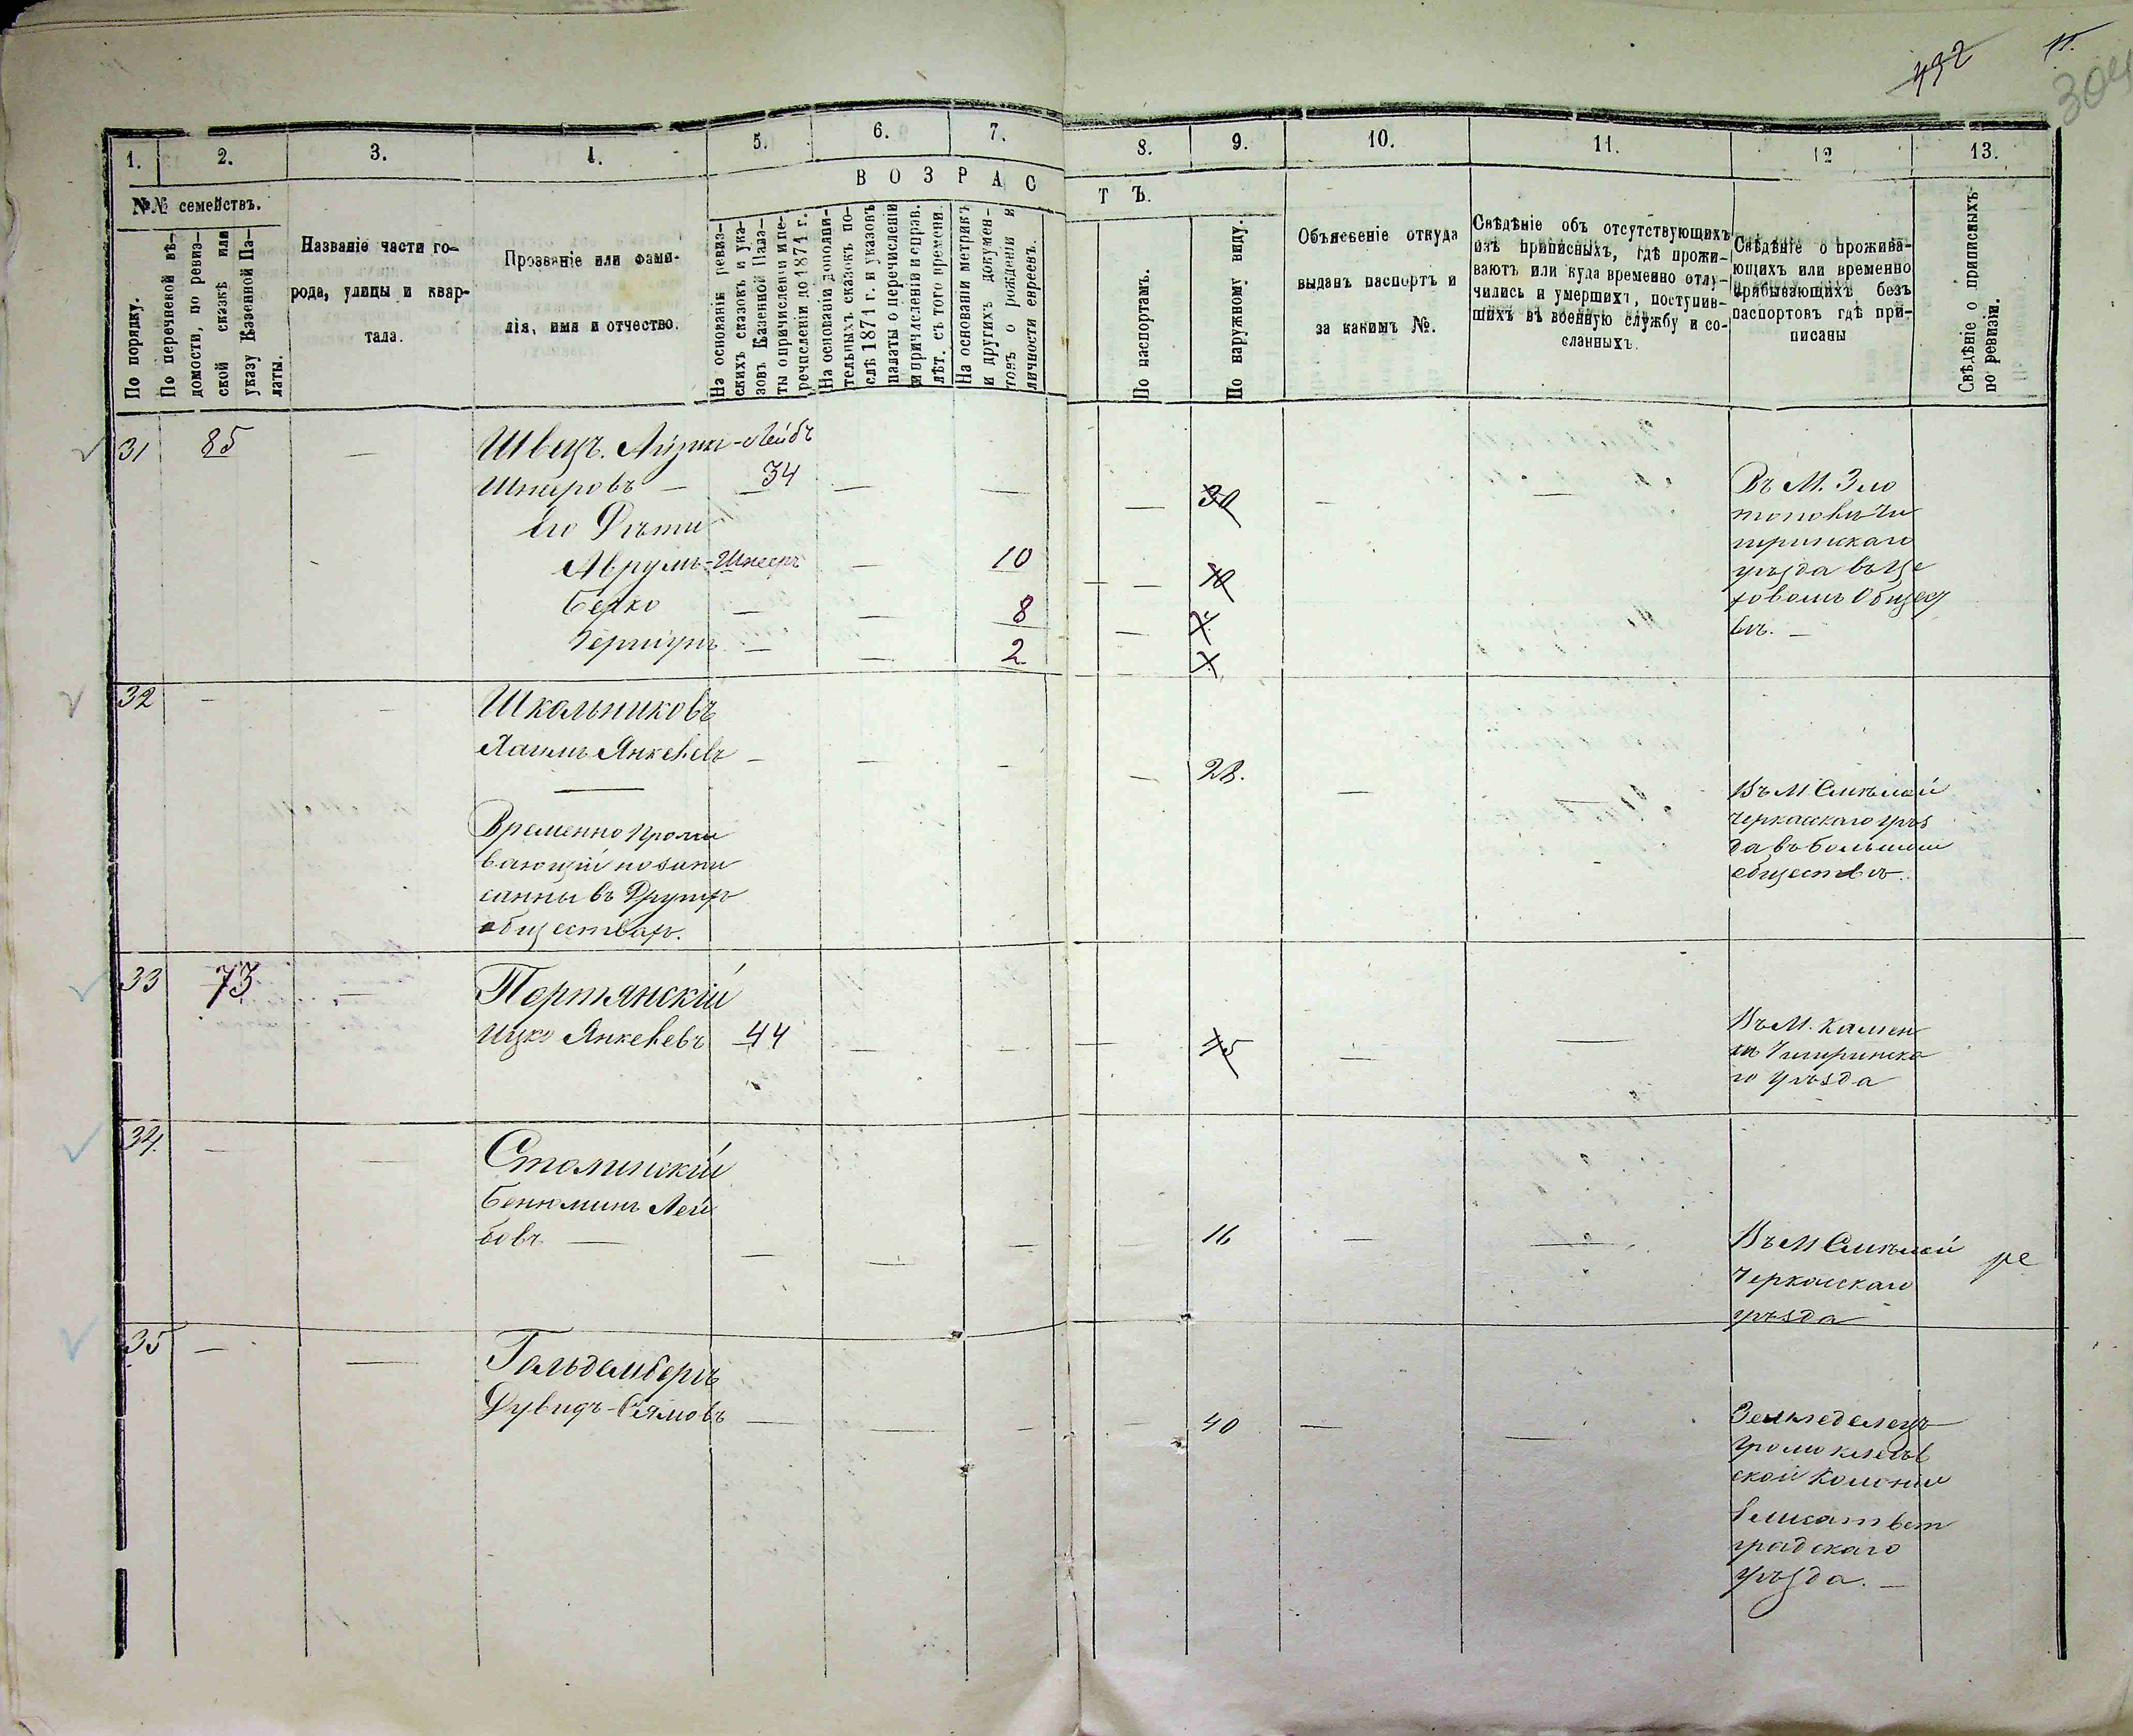 492
304
1. 2. 3. 4. 5. 6. 7. 8. 9. 10. 11. 12 13.
В О З Р А С Т Ъ.
№№ семействъ.
По порядку.
По перечневой вѣ-
домости, по ревиз-
ской сказкѣ или
указу Казенной Па-
латы.
Названіе части го-
рода, улицы и квар-
тала.
Прозваніе или фами-
лія, имя и отчество.
На основаніи ревиз-
скихъ сказокъ и ука-
зовъ Казенной Пала-
ты о причисленіи и пе-
речисленіи до 1874 г.
На основаніи дополни-
тельныхъ сказокъ по-
слѣ 1874 г. и указовъ
палаты о перечисленіи
и причисленіи и исправ.
лѣт. съ того времени.
На основаніи метрикъ
и другихъ докумен-
товъ о рожденіи и
личности евреевъ.
По паспортамъ.
По наружному виду.
Объясненіе откуда
выданъ паспортъ и
за какимъ №.
Свѣдѣніе объ отсутствующихъ
изъ приписныхъ, гдѣ прожи-
ваютъ или куда временно отлу-
чились и умершихъ, поступив-
шихъ въ военную службу и со-
сланныхъ.
Свѣдѣніе о прожива-
ющихъ или временно
прибывающихъ безъ
паспортовъ гдѣ при-
писаны
Свѣдѣніе о приписныхъ
по ревизіи.
31 85 — Швецъ. Айзикъ-Лейбъ
Шнеровъ — 34 — — — 30 — —
Его Дѣти
Аврумъ-Шнееръ — 10 — 10
Берко — — 8 —
Гершунъ — — 2 —
Въ М. Зло
тополи Чи
гиринскаго
уѣзда въ Це
ховомъ Общест
вѣ. —
32 — — Школьниковъ
Хаимъ Янкелевъ — — — — 28. —
Временно прожи
вающій но запи
санны въ Другихъ
обществахъ.
Въ М Смѣлой
Черкасскаго уѣз
да въ большомъ
обществѣ.
33 73 — Портянскій
Ицко Янкелевъ 44 — — — 45 — —
Въ М. Камен
кѣ Чигиринска
го Уѣзда
34. — — Столинскій
Бенюминъ Лей
бовъ — — — — — 16 — —
Въ М Смѣлой
Черкасскаго
уѣзда
35 — — Гольдембергъ
Дувидъ — — — — 40 — —
Земледелецъ
Громоклеев
ской Колоніи
Елисаветт
градскаго
Уѣзда. —